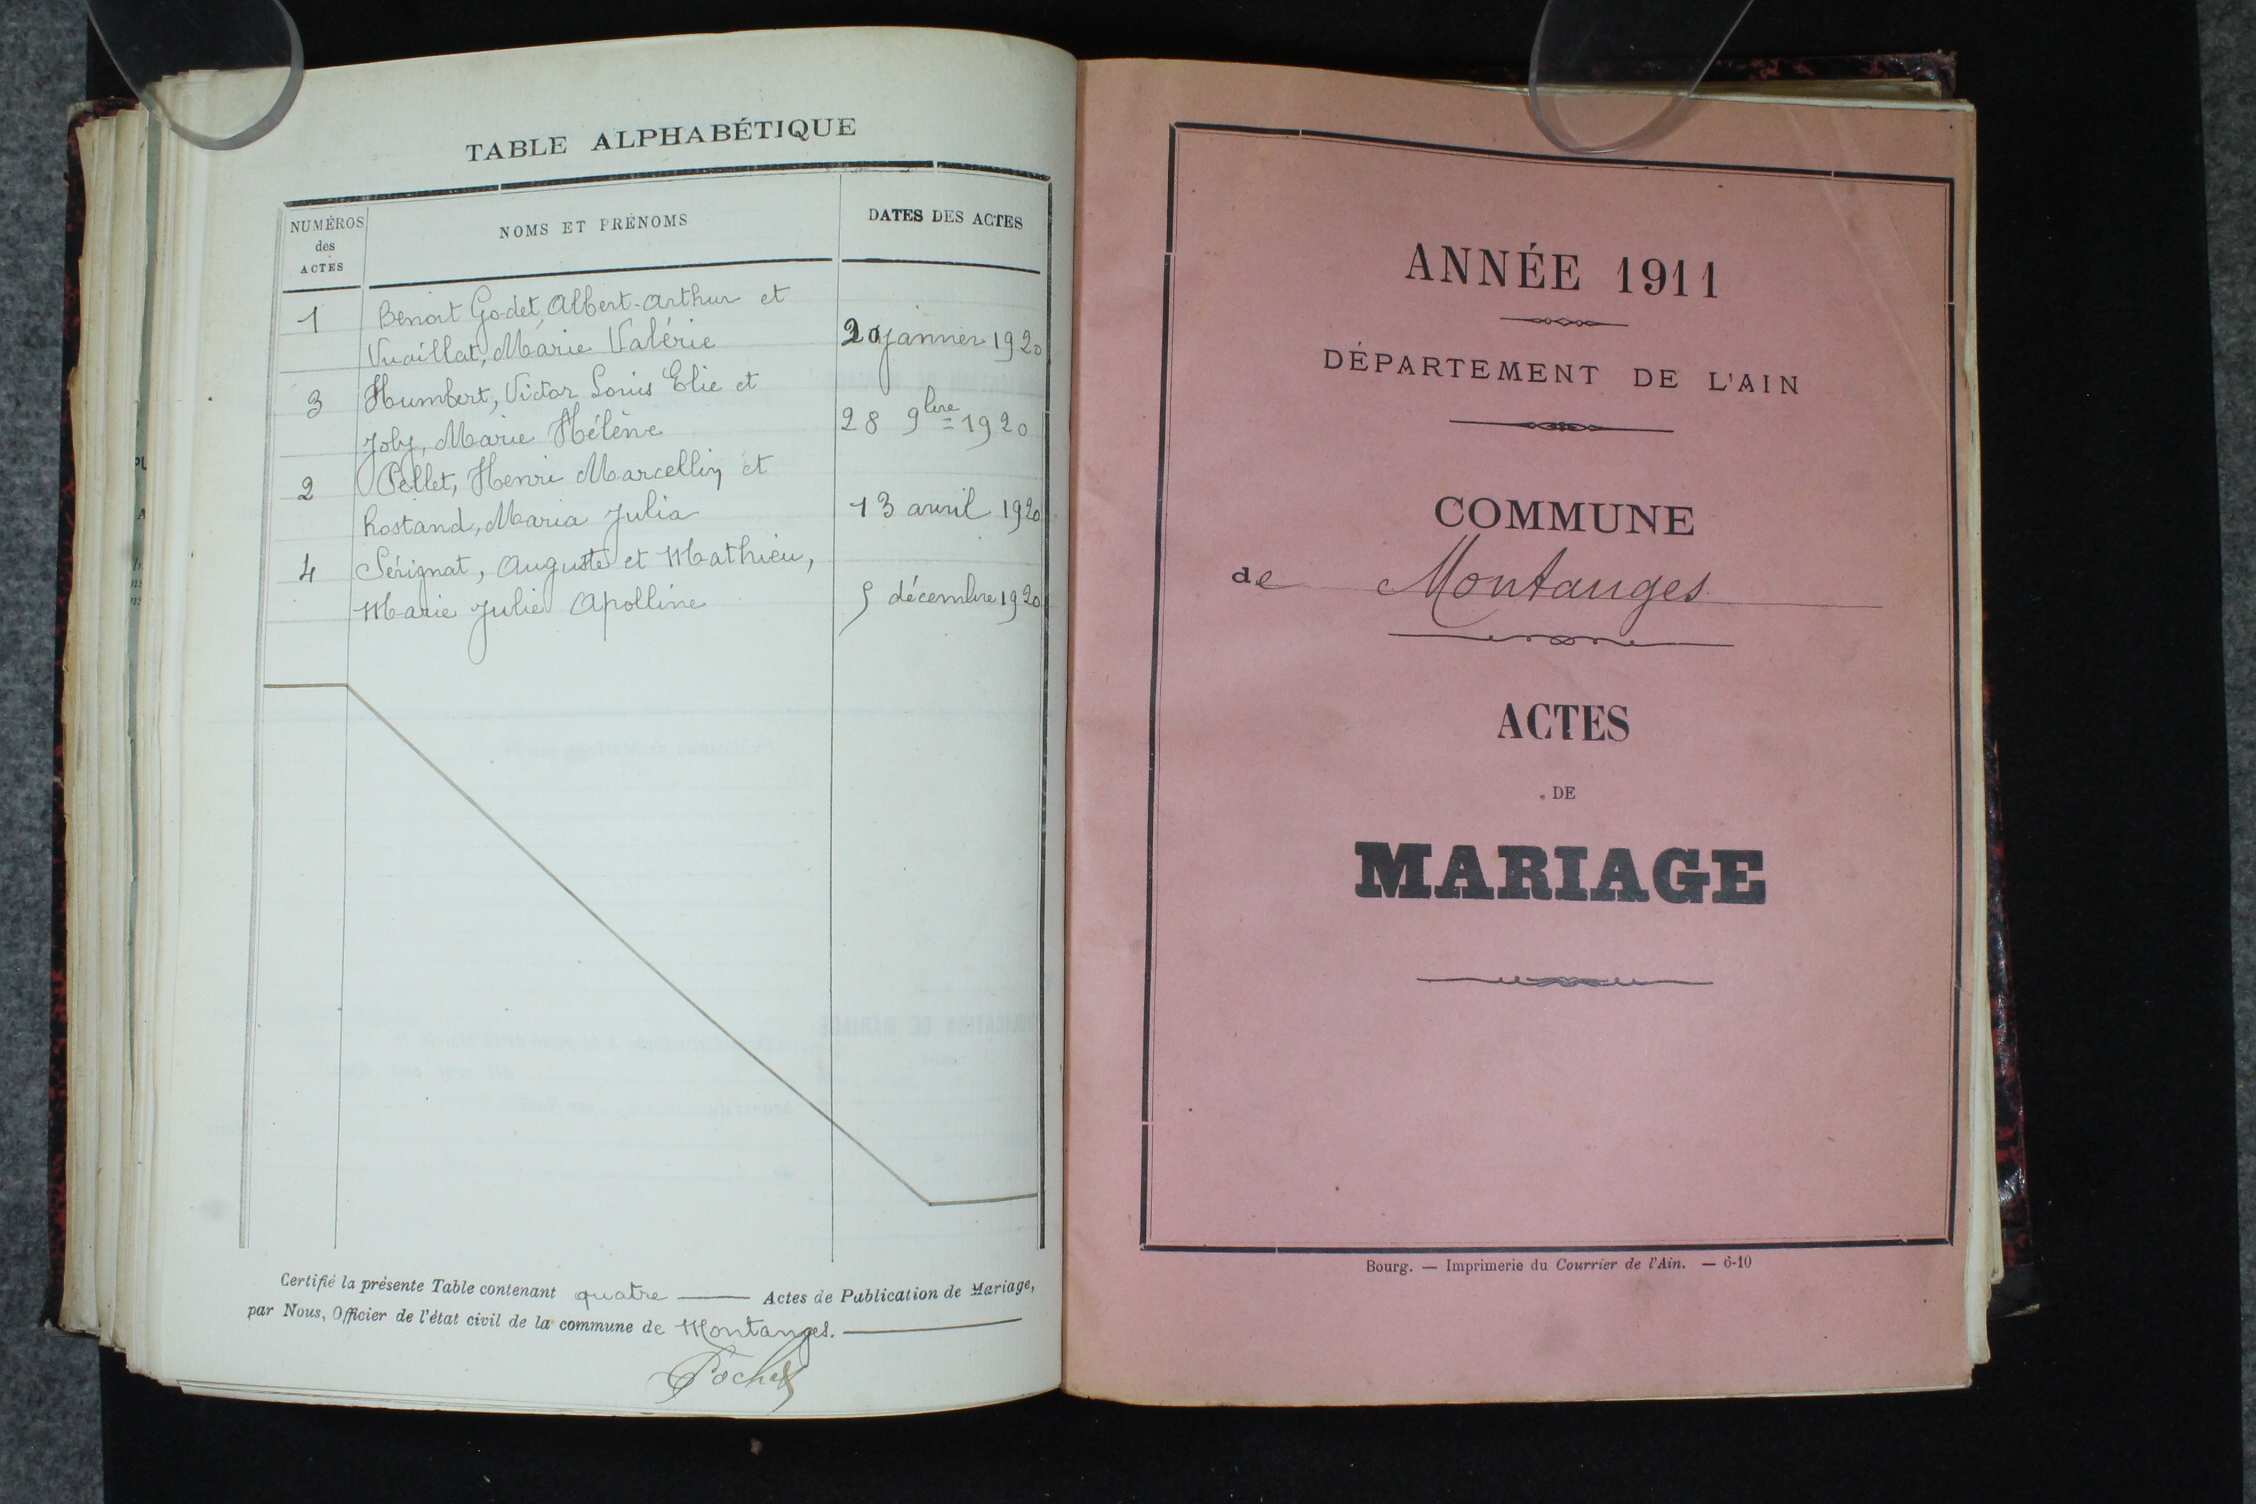 TABLE ALPHABÉTIQUE
NUMÉROS des ACTES
NOMS ET PRÉNOMS
DATES DES ACTES
1 Benoit Godet, Albert-Arthur et
Vuaillat, Marie Valérie 20 janvier 1920
3 Humbert, Victor Louis Elie et
Joly, Marie Hélène 28 9bre 1920
2 Pellet, Henri Marcellin et
Rostand, Maria Julia 13 avril 1920
4 Sérignat, Auguste et Mathieu,
Marie Julie Apolline 5 décembre 1920
Certifié la présente Table contenant quatre Actes de Publication de Mariage,
par Nous, Officier de l'état civil de la commune de Montanges.
Pochet
ANNÉE 1911
DÉPARTEMENT DE L'AIN
COMMUNE
de Montanges
ACTES
DE
MARIAGE
Bourg. — Imprimerie du Courrier de l'Ain. — 6-10